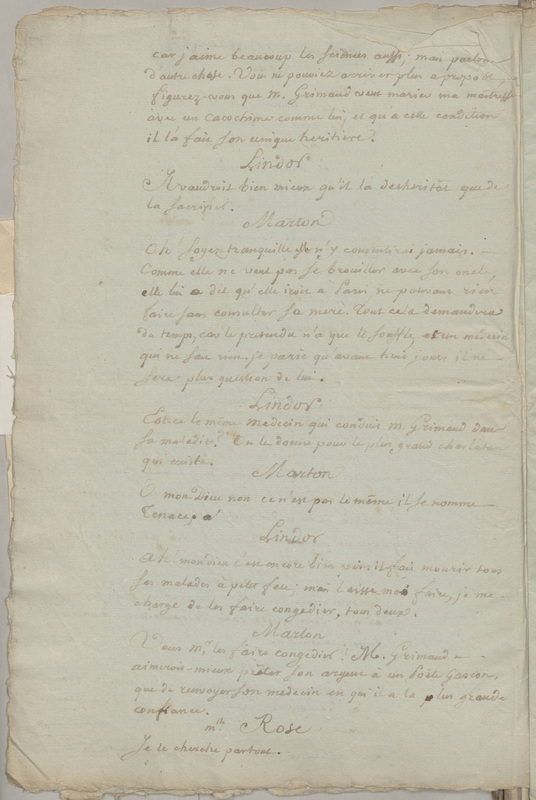 car j'aime beaucoup les sciences aussi; mais parlons
d'autre chose. Vous ne pouviez arriver plus a propos
figurez-vous que M. Grimaud veut marier ma maitresse
avec un cacochime comme lui, et qu'a cette condition
il la fait son unique heritiere.
Lindor
Il vaudroit bien mieux qu'il la desheritât que de
la sacrifier.
Marton
Oh soyez tranquille elle n'y consentira jamais. -
Comme elle ne veut pas se brouiller avec son oncle,
elle lui a dit qu'elle iroit à Paris ne pouvant rien
faire sans consulter sa mere. Tout cela demandera
du temps, car le pretendu n'a que le souffle, et un médecin
qui ne sait rien. je parie qu'avant huit jours il ne
sera plus question de lui.
Lindor
Est-ce le même medecin qui conduit M. Grimaud dans
sa maladie? On le donne pour le plus grand charlatan
qui existe.
Marton
O mon Dieu non ce n'est pas le même il se nomme
Tenace,
Lindor
Ah! mon dieu c'est encore bien pis; il fait mourir tous
ses malades à petit feu; mais laisse moi faire, je me
charge de les faire congedier, tous deux.
Marton
Vous M. les faire congedier! M. Grimaud -
aimeroit-mieux prêter son argent à un Poëte Gascon,
que de renvoyer son medecin en qui il a la plus grande
confiance.
Mlle Rose
Je te cherche partout.